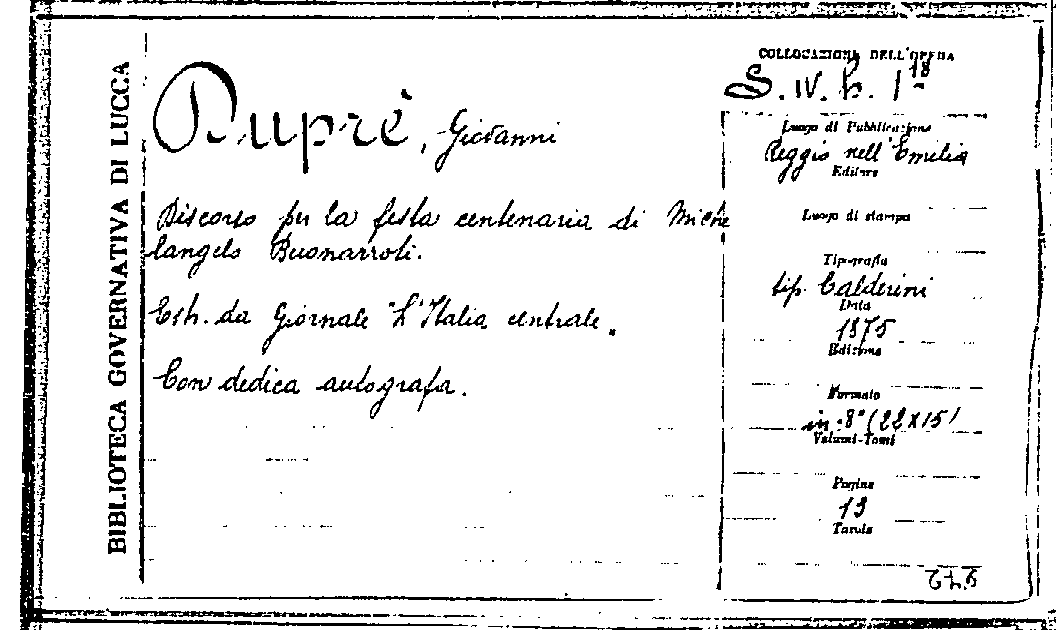 BIBLIOTECA GOVERNATIVA DI LUCCA
Duprè, Giovanni
Discorso per la festa centenaria di Miche
langelo Buonarroti.
Estr. da Giornale "L'Italia centrale.
Con dedica autografa.
COLLOCAZIONE DELL'OPERA
S. IV. b. 1 18
Luogo di Pubblicazione
Reggio nell'Emilia
Editore
Luogo di stampa
Tipografia
tip. Calderini
Data
1875
Edizione
Formato
in-8° (22x15)
Volumi-Tomi
Pagine
13
Tavole